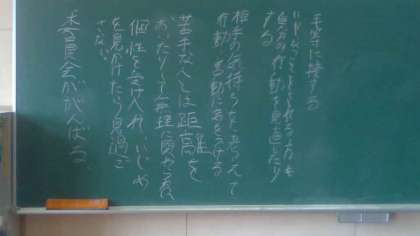 平等に接する
いやなことをされる
自分の行動を見直したり
する
相手の気持ちを考えて
行動、言動に気をつける
苦手な人とは距離を
おいたりして無理に関わらない
個性を受け入れ、いじめ
を見かけたら見過ご
さない
委員会ががんばる